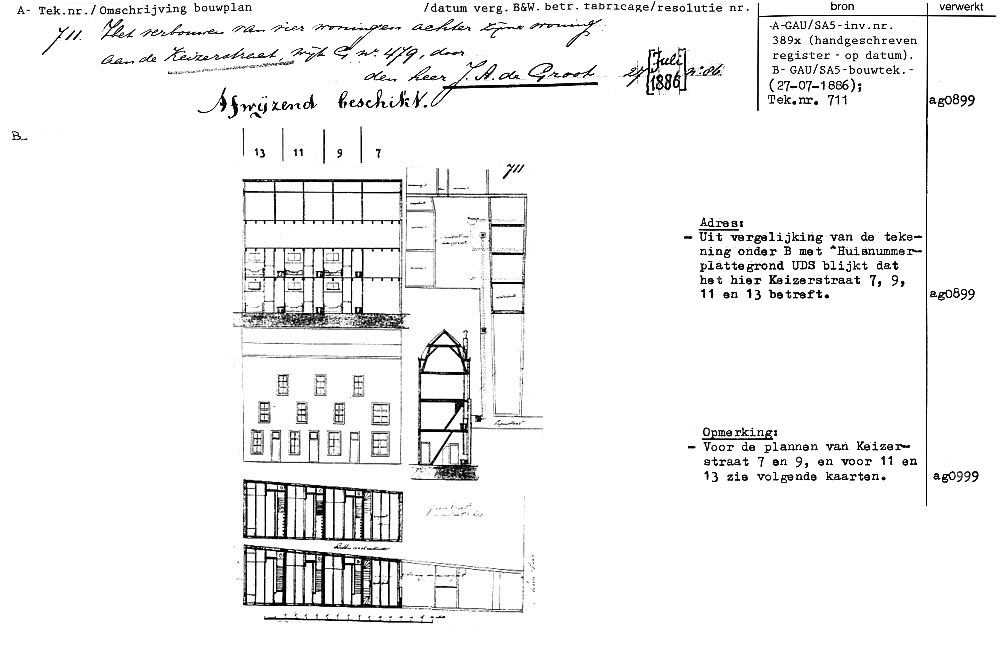 A- Tek.nr./Omschrijving bouwplan /datum verg. B&W. betr. fabricage/resolutie nr. bron verwerkt
711. Het verbouwen van vier woningen achter zijne woning
aan de Keizerstraat wijk G no. 479, door
den heer J. A. de Groot 27 [Juli 1886] no. 86.
Afwijzend beschikt.
A-GAU/SA5-inv.nr.
389x (handgeschreven
register - op datum).
B- GAU/SA5-bouwtek.-
(27-07-1886);
Tek.nr. 711
ag0899
B-
13 11 9 7
711
Adres:
- Uit vergelijking van de teke-
ning onder B met "Huisnummer-
plattegrond UDS blijkt dat
het hier Keizerstraat 7, 9,
11 en 13 betreft.
ag0899
Opmerking:
- Voor de plannen van Keizer-
straat 7 en 9, en voor 11 en
13 zie volgende kaarten.
ag0999